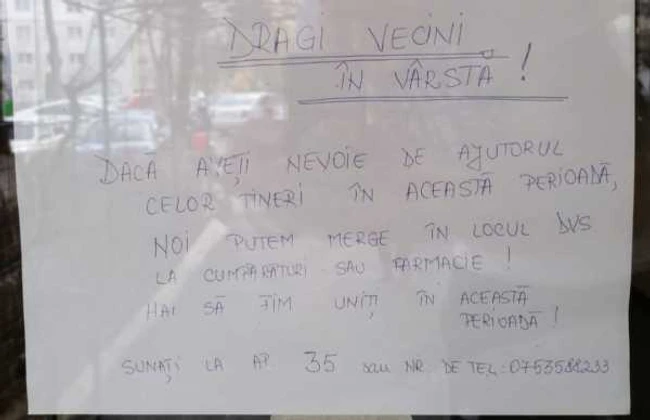 DRAGI VECINI
ÎN VÂRSTĂ !
DACĂ AVEȚI NEVOIE DE AJUTORUL
CELOR TINERI ÎN ACEASTĂ PERIOADĂ,
NOI PUTEM MERGE ÎN LOCUL DVS
LA CUMPĂRĂTURI SAU FARMACIE !
HAI SĂ FIM UNIȚI ÎN ACEASTĂ
PERIOADĂ !
SUNAȚI LA AP 35 sau NR DE TEL: 0753588233